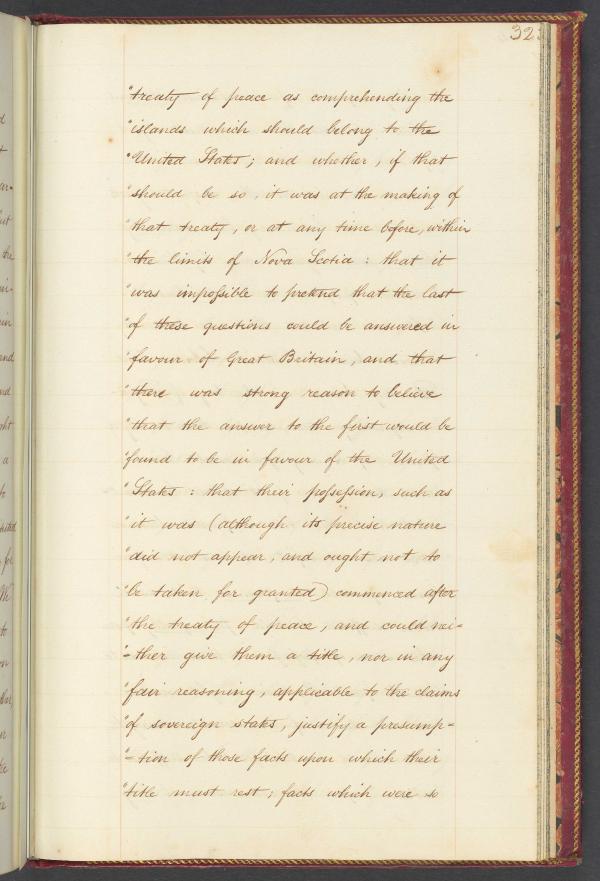 32
"treaty of peace as comprehending the
"islands which should belong to the
"United States; and whether, if that
"should be so, it was at the making of
"that treaty, or at any time before, within
"the limits of Nova Scotia: that it
"was impoſsible to pretend that the last
"of these questions could be answered in
"favour of Great Britain, and that
"there was strong reason to believe
"that the answer to the first would be
"found to be in favour of the United
"States: that their poſseſsion, such as
"it was (although its precise nature
"did not appear, and ought not to
"be taken for granted) commenced after
"the treaty of peace, and could nei=
"=ther give them a title, nor in any
"fair reasoning, applicable to the claims
"of sovereign states, justify a presump=
"=tion of those facts upon which their
"title must rest; facts which were so